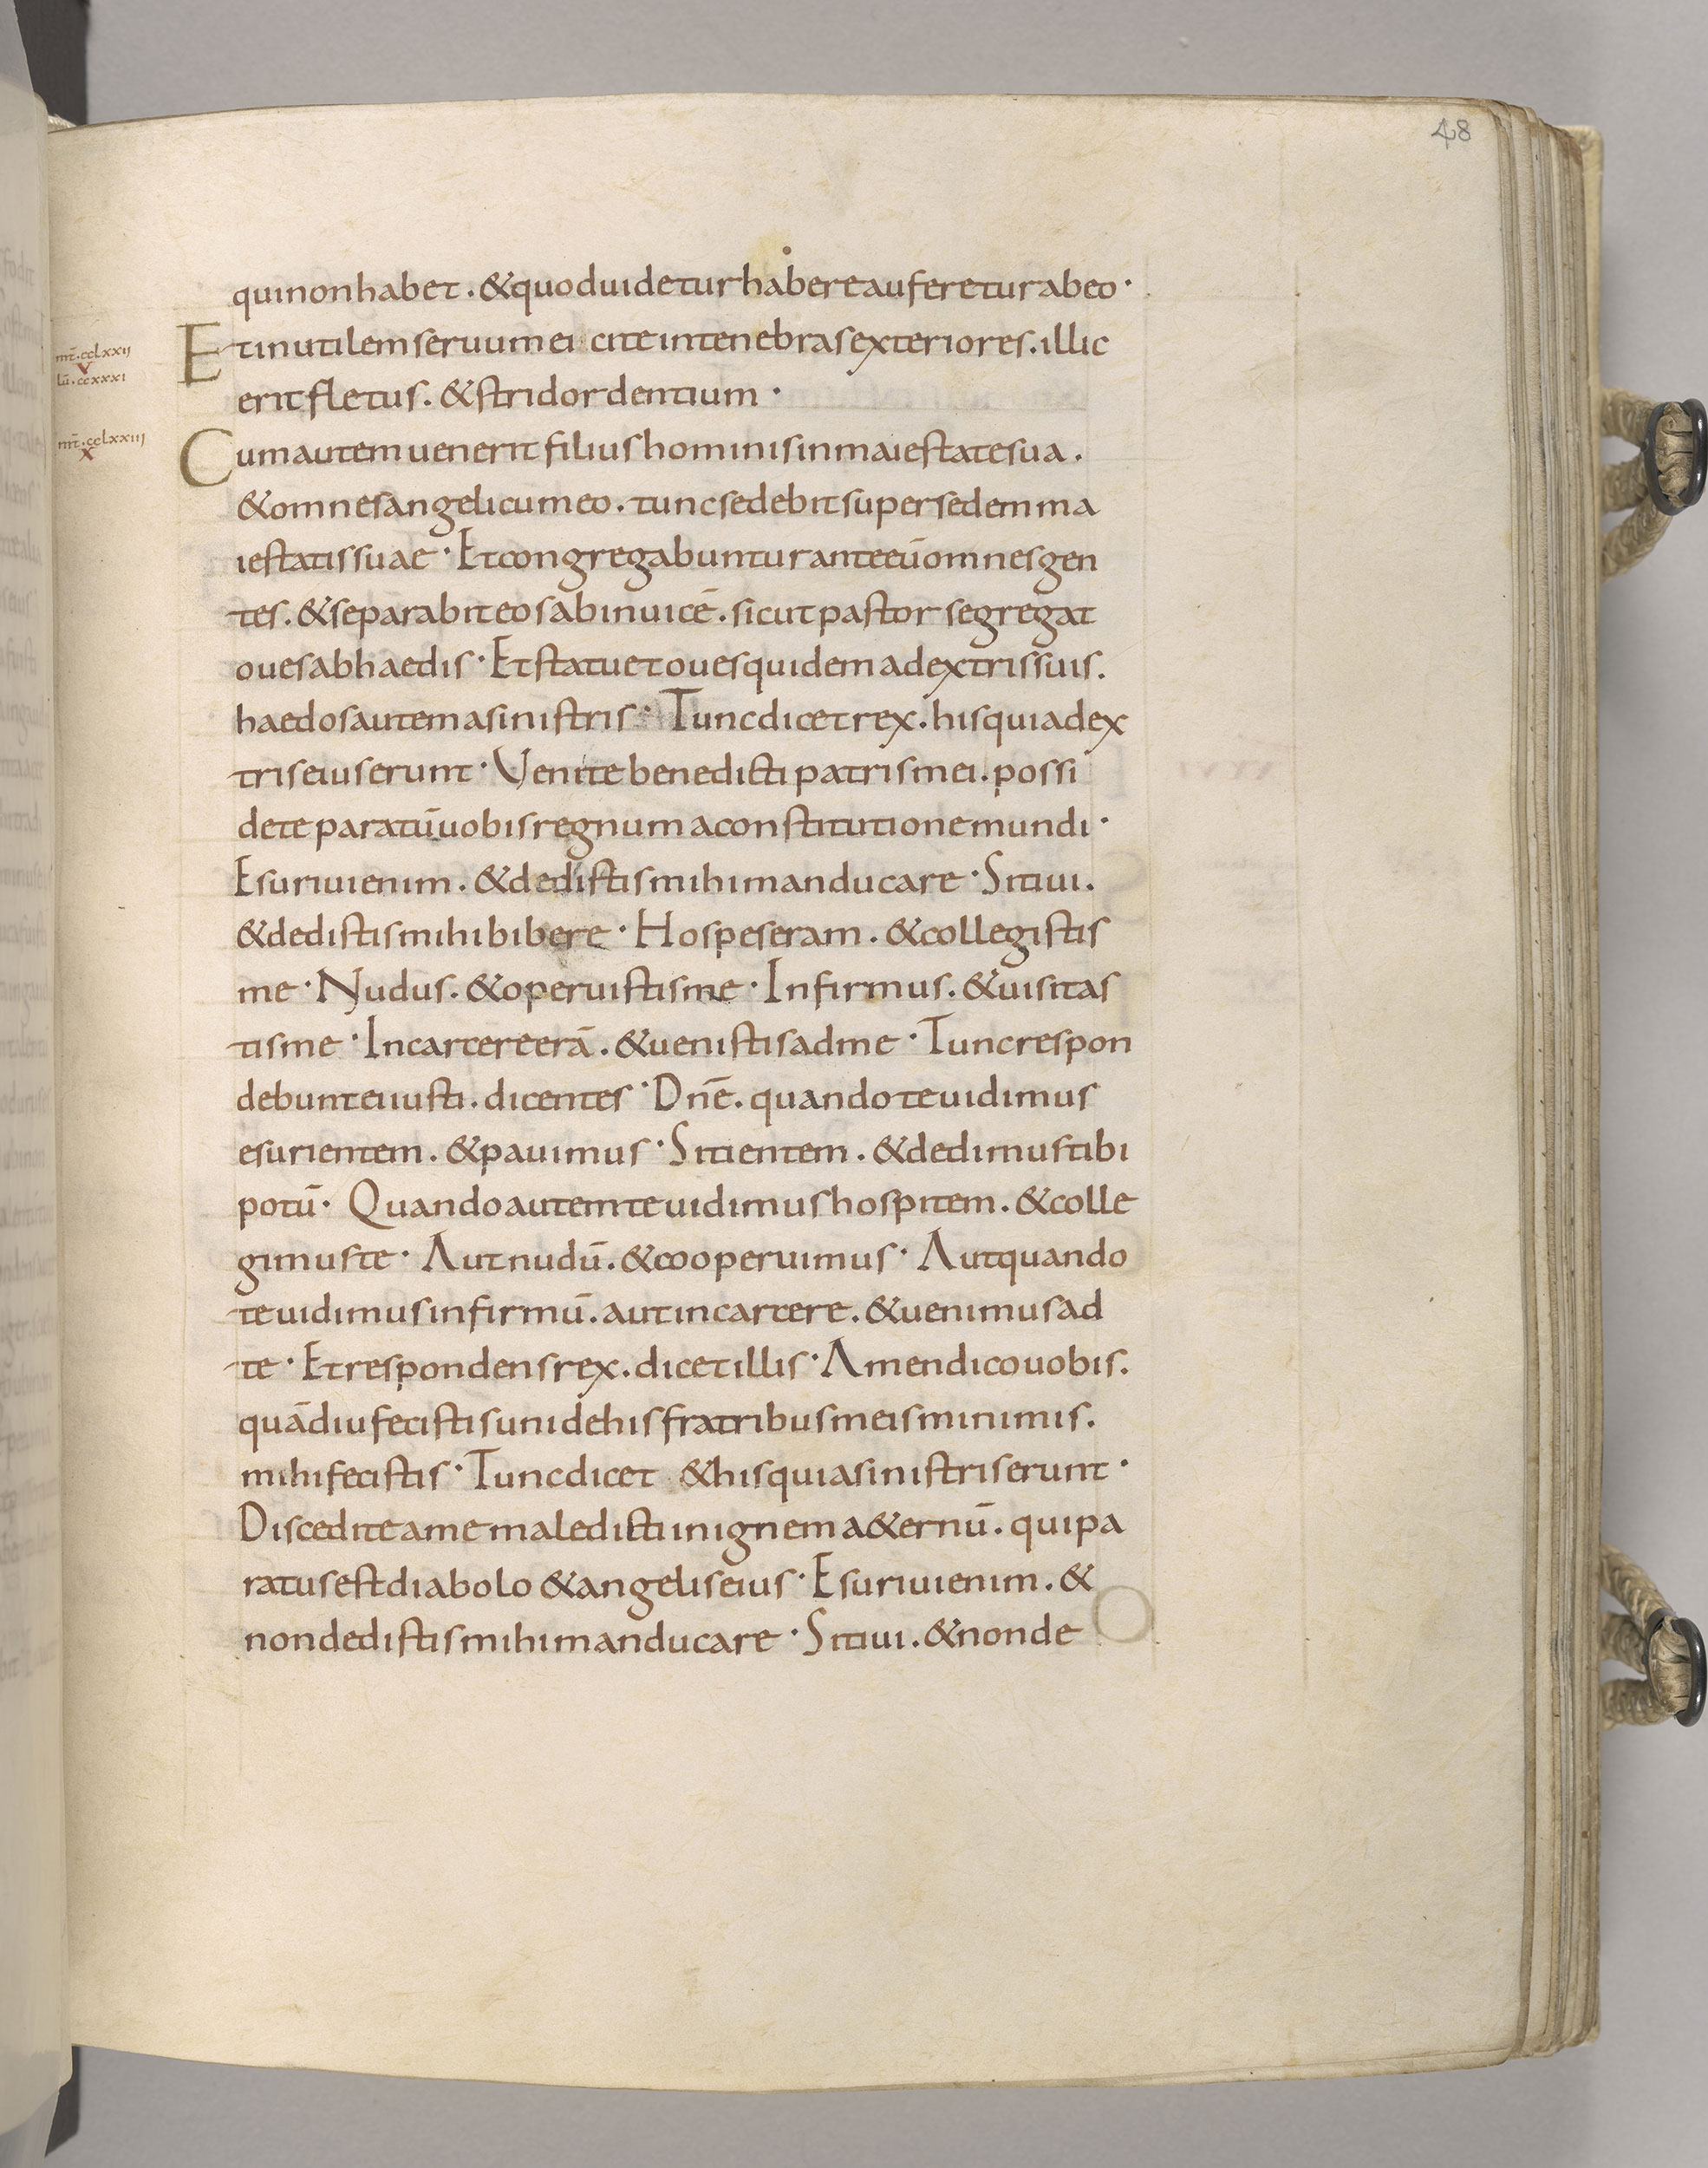 48
qui non habet. & quod uidetur habere auferetur ab eo·
mt̄.cclxxii
v
lū.ccxxxi
Et inutilem seruum ei cite in tenebras exteriores. illic
erit fletus. & stridor dentium·
mt̄.cclxxiii
x
Cum autem uenerit filius hominis in maiestate sua.
& omnes angeli cum eo. tunc sedebit super sedem ma
iestatis suae· Et congregabuntur ante eū omnes gen
tes. & separabit eos ab inuicē. sicut pastor segregat
oues ab haedis· Et statuet oues quidem a dextris suis.
haedos autem a sinistris· Tunc dicet rex. his qui a dex
tris eius erunt· Venite benedicti patris mei. possi
dete paratū uobis regnum a constitutione mundi·
Esuriui enim. & dedistis mihi manducare· Sitiui.
& dedistis mihi bibere· Hospes eram. & collegistis
me· Nudus. & operuistis me· Infirmus. & uisitas
tis me· In carcere erā. & uenistis ad me· Tunc respon
debunt ei iusti. dicentes· Dnē. quando te uidimus
esurientem. & pauimus· Sitientem. & dedimus tibi
potū· Quando autem te uidimus hospitem. & colle
gimus te· Aut nudū. & cooperuimus· Aut quando
te uidimus infirmū. aut in carcere. & uenimus ad
te· Et respondens rex. dicet illis· Amen dico uobis.
quādiu fecistis uni de his fratribus meis minimis.
mihi fecistis· Tunc dicet & his qui a sinistris erunt·
Discedite a me maledicti in ignem a&ernū. qui pa
ratus est diabolo & angelis eius· Esuriui enim. &
non dedistis mihi manducare· Sitiui. & non de